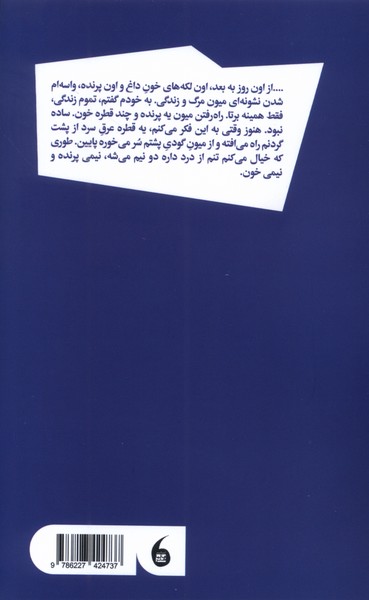 ....از اون روز به بعد، اون لکه‌های خونِ داغ و اون پرنده، واسه‌ام
شدن نشونه‌ای میون مرگ و زندگی. به خودم گفتم، تموم زندگی،
فقط همینه برتا. راه‌رفتن میون یه پرنده و چند قطره خون. ساده
نبود. هنوز وقتی به این فکر می‌کنم، یه قطره عرقِ سرد از پشت
گردنم راه می‌افته و از میونِ گودیِ پشتم سُر می‌خوره پایین. طوری
که خیال می‌کنم تنم از درد داره دو نیم می‌شه، نیمی پرنده و
نیمی خون.
9 786227 424737